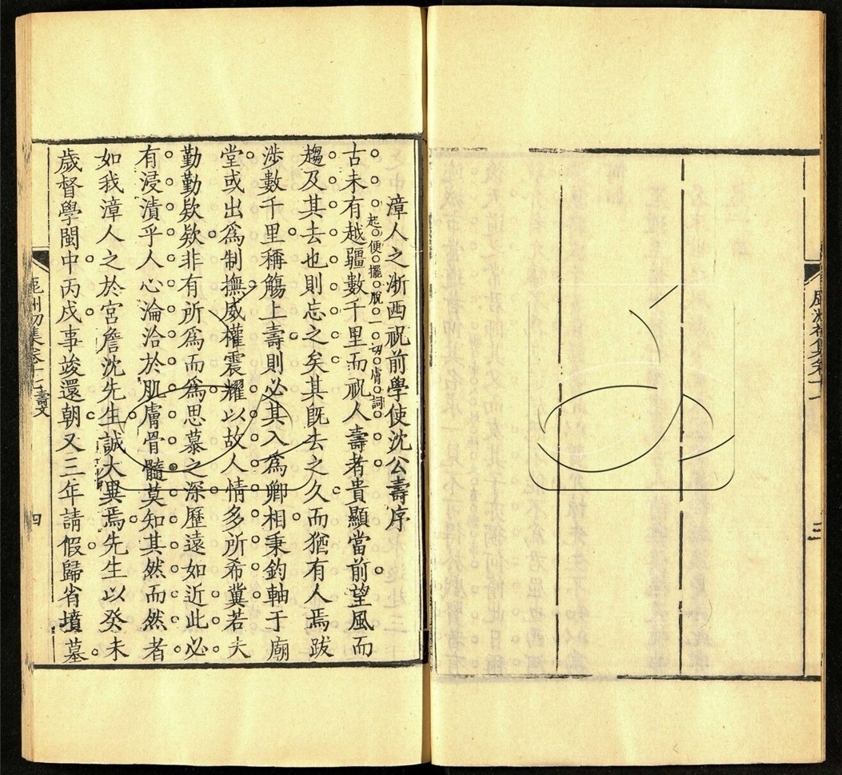 三
漳人之浙西祝前學使沈公壽序
古未有越疆數千里而祝人壽者貴顯當前望風而
起便擺脫一切膚詞
趨及其去也則忘之矣其旣去之久而猶有人焉跋
涉數千里稱觴上壽則必其入爲卿相秉鈞軸于廟
堂或出爲制撫威權震耀以故人情多所希冀若夫
勤勤欵欵非有所爲而爲思慕之深歷遠如近此必
有浸漬乎人心淪洽於肌膚骨髓莫知其然而然者
如我漳人之於宮詹沈先生誠大異焉先生以癸未
歲督學閩中丙戌事竣還朝又三年請假歸省墳墓
鹿洲初集卷十 壽文 四